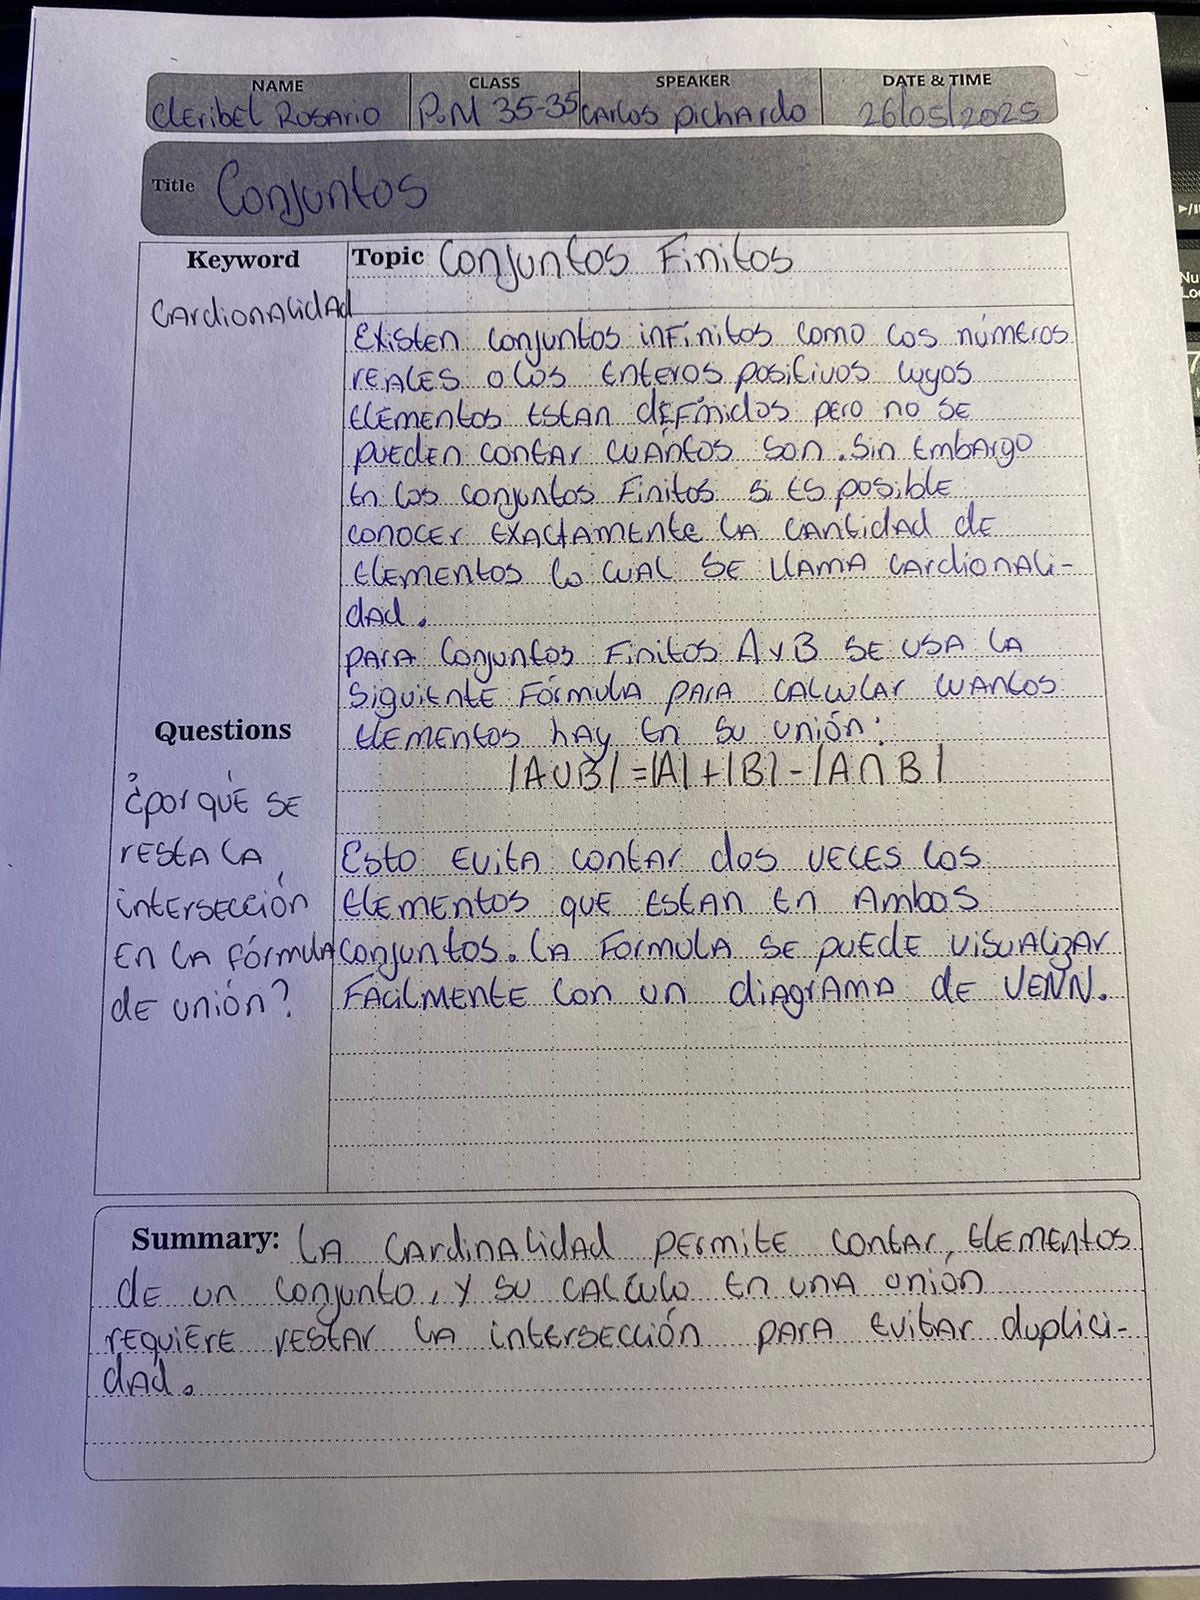 NAME CLASS SPEAKER DATE & TIME
Cleribel Rosario P.M 35-35 Carlos Pichardo 26/05/2025
Title Conjuntos
Keyword
Cardionalidad
Topic Conjuntos Finitos
Existen conjuntos infinitos como los números
reales o los enteros positivos cuyos
elementos estan definidos pero no se
pueden contar cuántos son. Sin embargo
en los conjuntos finitos si es posible
conocer exactamente la cantidad de
elementos lo cual se llama cardionali-
dad.
para conjuntos finitos A y B se usa la
siguiente fórmula para calcular cuantos
elementos hay en su unión:
|A∪B| = |A| + |B| - |A∩B|
Esto evita contar dos veces los
elementos que estan en ambos
conjuntos. La formula se puede visualizar
facilmente con un diagrama de Venn.
Questions
¿por qué se
resta la
intersección
en la fórmula
de unión?
Summary: La cardinalidad permite contar, elementos
de un conjunto, y su calculo en una unión
requiere restar la intersección para evitar duplici-
dad.